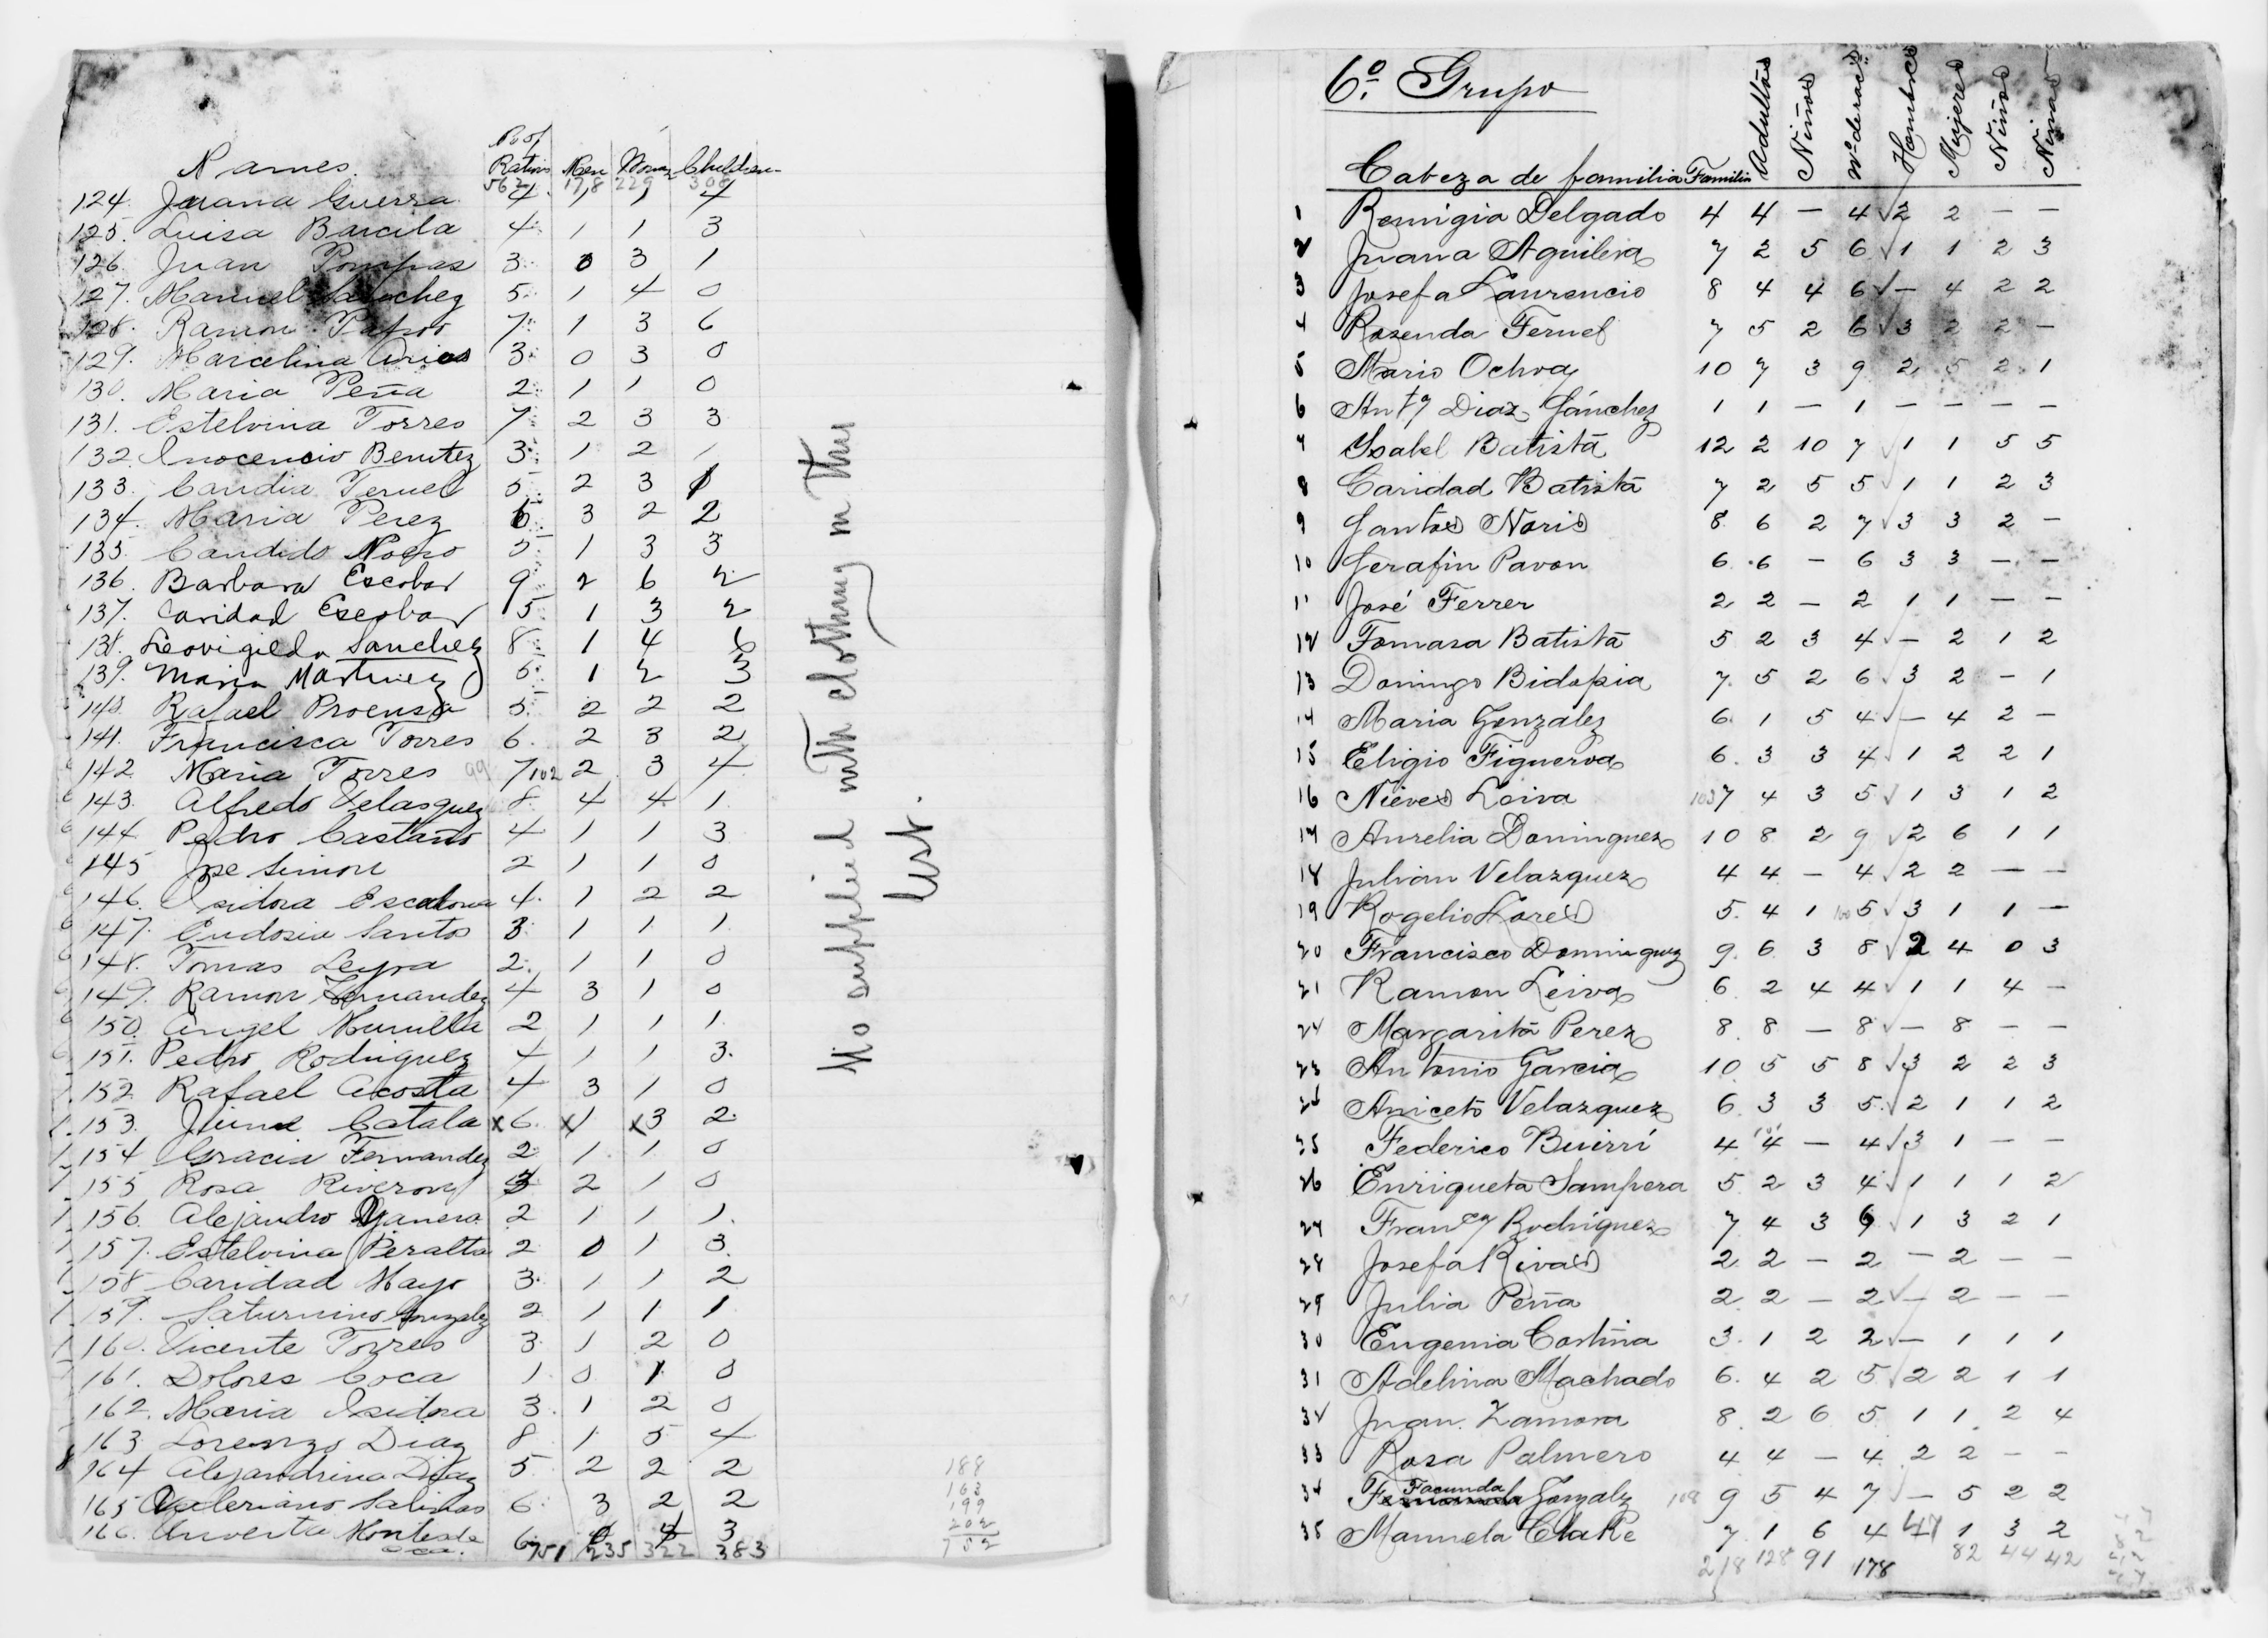 No of
Names. Rations Men Women Children
562 178 229 308
124. Juana Guerra 4 1 1 4
125. Luisa Barcila 4 1 1 3
126. Juan Pompas 3 0 3 1
127. Manuel Sanchez 5 1 4 0
128. Ramon 7 1 3 6
129. Marcelina Arias 3 0 3 0
130. Maria Peña 2 1 1 0
131. Estelvina Torres 7 2 3 3
132. Inocencio Benitez 3 1 2 1
133. Candia Teruel 5 2 3 1
134. Maria Perez 6 3 2 2
135. Candido 5 1 3 3
136. Barbara Escobar 9 2 6 2
137. Caridad Escobar 5 1 3 2
138. Leovigilda Sanchez 8 1 4 6
139. Maria Martinez 5 1 2 3
140. Rafael Proensa 5 2 2 2
141. Francisca Torres 6 2 3 2
142 Maria Torres 99 7 102 2 3 4
143. Alfredo Velasquez 8 4 4 1
144 Pedro Castaño 4 1 1 3
145 Jose Simon 2 1 1 0
146. Isidora Escalona 4 1 2 2
147. Eudosia Santos 3 1 1 1
148. Tomas Leyva 2 1 1 0
149. Ramon Hernandez 4 3 1 0
150. Angel Munilla 2 1 1 1
151. Pedro Rodriguez 4 1 1 3
152 Rafael Acosta 4 3 1 0
153. Catala x 6 x 1 x 3 2
154 Gracia Fernandez 2 1 1 0
155 Rosa Riveron 3 2 1 0
156. Alejandro Yanera 2 1 1 1
157. Estelvina Peralta 2 0 1 3
158 Caridad Mayo 3 1 1 2
159. Saturnino Gonzalez 2 1 1 1
160. Vicente Torres 3 1 2 0
161. Dolores Coca 1 0 1 0
162. Maria Isidora 3 1 2 0
163 Lorenzo Diaz 8 1 5 4
164 Alejandrina Diaz 5 2 2 2
165 Valeriano Salinas 6 3 2 2
166. Montes de 6 0 4 3
oca.
751 235 322 383
188
163
199
202
752
No supplied with clothing in this
list.
6º. Grupo
Cabeza de familia Familia Adultos Niños Nº de rac. Hombres Mujeres Niños Niñas
1 Remigia Delgado 4 4 — 4 √ 2 2 — —
2 Juana Aguilera 7 2 5 6 √ 1 1 2 3
3 Josefa Laurencio 8 4 4 6 √ — 4 2 2
4 Rosenda Teruel 7 5 2 6 √ 3 2 2 —
5 Mario Ochoa 10 7 3 9 2 5 2 1
6 Antª Diaz Sánchez 1 1 — 1 — — — —
7 Ysabel Batista 12 2 10 7 √ 1 1 5 5
8 Caridad Batista 7 2 5 5 √ 1 1 2 3
9 Santos Noris 8 6 2 7 √ 3 3 2 —
10 Serafin Pavon 6 6 — 6 3 3 — —
11 José Ferrer 2 2 — 2 1 1 — —
12 Tomasa Batista 5 2 3 4 √ — 2 1 2
13 Domingo Bidopia 7 5 2 6 √ 3 2 — 1
14 Maria Gonzalez 6 1 5 4 √ — 4 2 —
15 Eligio Figueroa 6 3 3 4 √ 1 2 2 1
16 Nieves Leiva 103 7 4 3 5 √ 1 3 1 2
17 Aurelia Dominguez 10 8 2 9 √ 2 6 1 1
18 Julian Velazquez 4 4 — 4 √ 2 2 — —
19 Rogelio Lores 5 4 1 100 5 √ 3 1 1 —
20 Francisco Dominguez 9 6 3 8 √ 2 4 0 3
21 Ramon Leiva 6 2 4 4 √ 1 1 4 —
22 Margarita Perez 8 8 — 8 √ — 8 — —
23 Antonio Garcia 10 5 5 8 √ 3 2 2 3
24 Aniceto Velazquez 6 3 3 5 √ 2 1 1 2
25 Federico Buirri 4 4 — 4 √ 3 1 — —
26 Enriqueta Sampera 5 2 3 4 √ 1 1 1 2
27 Franca Rodriguez 7 4 3 6 √ 1 3 2 1
28 Josefa Rivas 2 2 — 2 — 2 — —
29 Julia Peña 2 2 — 2 √ — 2 — —
30 Eugenia Cortina 3 1 2 2 √ — 1 1 1
31 Adelina Machado 6 4 2 5 √ 2 2 1 1
32 Juan Zamora 8 2 6 5 1 1 2 4
33 Rosa Palmero 4 4 — 4 2 2 — —
34 Facunda Gonzalz 108 9 5 4 7 √ — 5 2 2
35 Manuela Clake 7 1 6 4 47 1 3 2
218 128 91 178 82 44 42